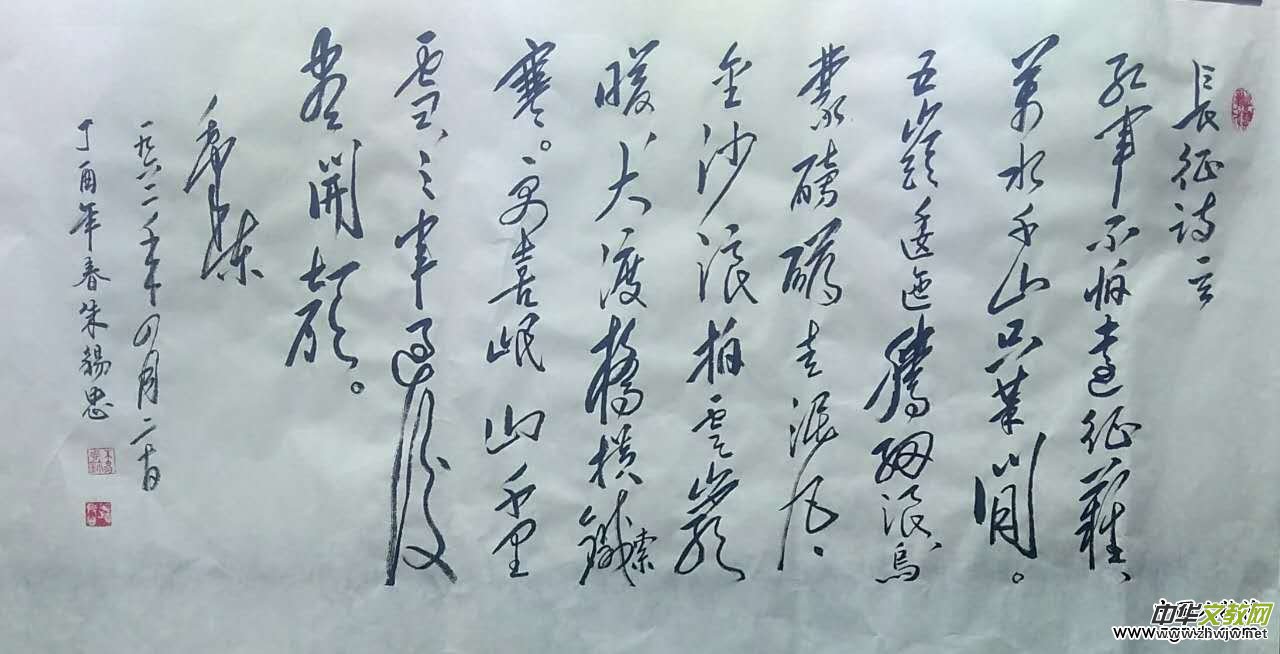 長征詩一首
紅軍不怕遠征難、
萬水千山只等閒。
五嶺逶迤騰細浪烏
蒙磅礴走泥丸、
金沙浪拍雲巖
暖、大渡橋橫鐵索
寒。更喜岷山千里
雪、三軍過後
盡開顏。
毛澤東
一九六二年四月二十日
丁酉年春朱錫忠
中华文教网
www.zhwjw.net